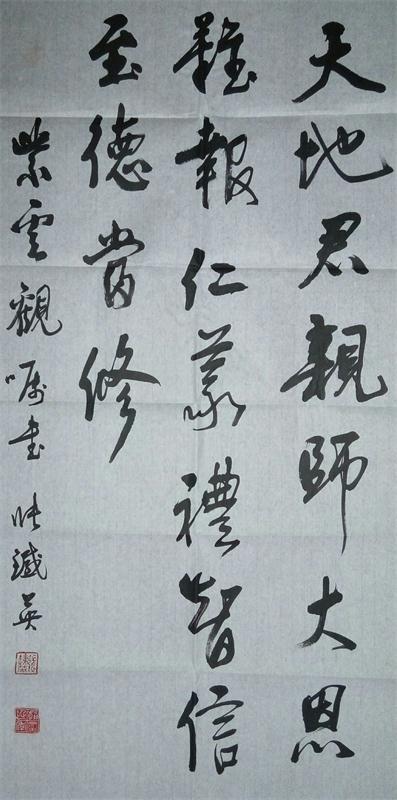 天地君親師大恩
難報仁義禮智信
至德當修
紫雲觀嘱書 张鐵英